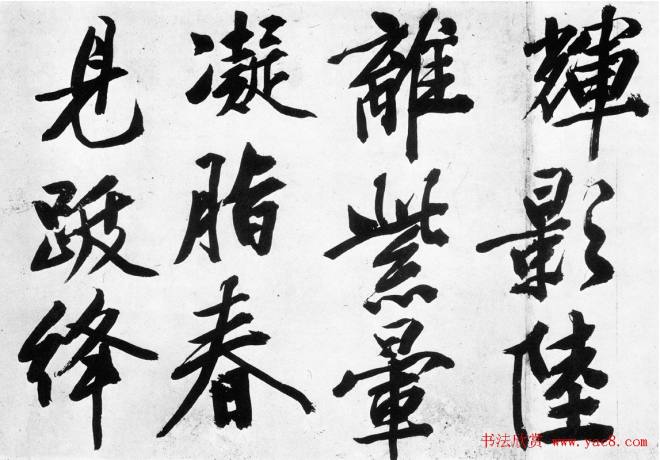 輝影陸
離紫暈
凝脂春
見跋絳
书法欣赏 www.yac8.com